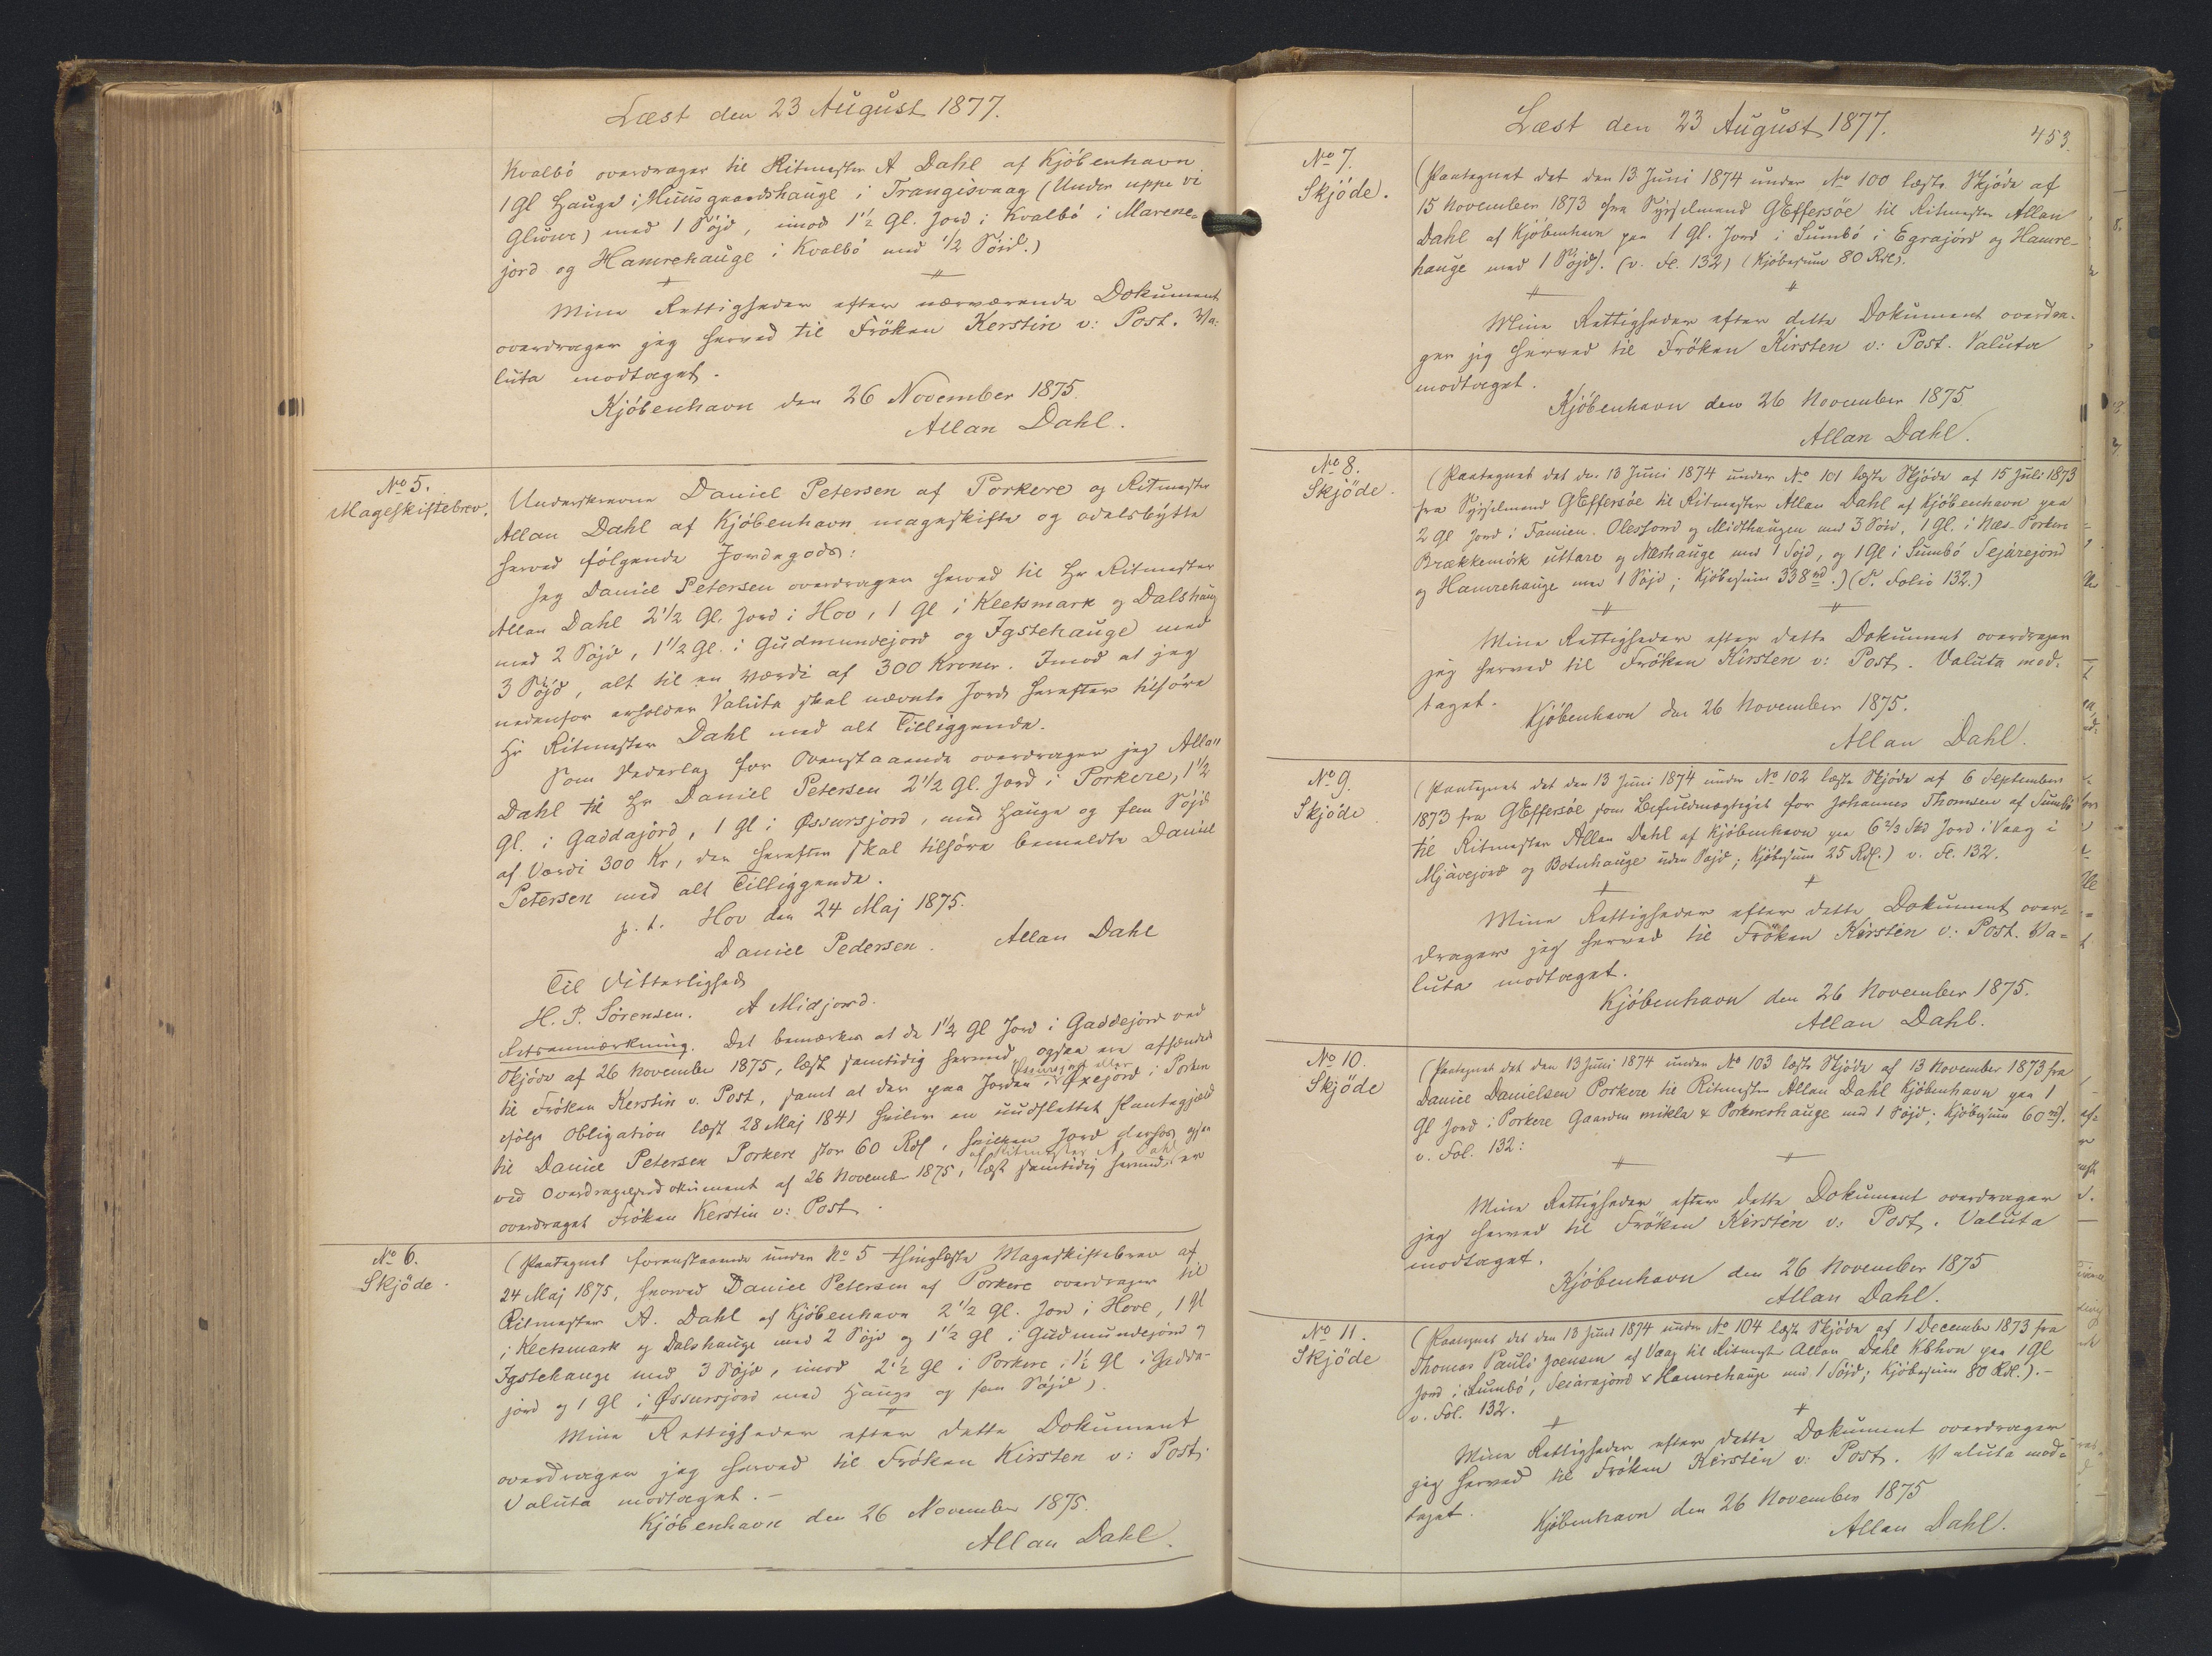 Læst den 23 August 1877.
Kvalbö overdrager til Ritmester A Dahl af Kjöbenhavn
1 Gl Hauge i Huusgaardshauge i Trangisvaag (Under uppe vi
Gluver) med 1 Söjd, imod 1½ Gl. Jord i Kvalbö i Marene=
jord og Hamrehauge i Kvalbö med ½ Söid.)
Mine Rettigheder efter nærværende Dokument
overdrager jeg herved til Fröken Kerstin v: Post. Va=
luta modtaget.
Kjöbenhavn den 26 November 1875.
Allan Dahl.
No 5.
Mageskiftebrev.
Underskrevne Daniel Petersen af Porkere og Ritmester
Allan Dahl af Kjöbenhavn mageskifte og odelsbytte
herved fölgende Jordegods:
Jeg Daniel Petersen overdrager herved til Hr Ritmester
Allan Dahl 2½ Gl. Jord i Hov, 1 Gl i Kleksmark og Dalshaug
med 2 Söjd, 1½ Gl. i Gudmundejord og Igstehauge med
3 Söjd, alt til en Værdi af 300 Kroner. Imod at jeg
nedenfor erholder Valuta skal nævnte Jord herefter tilhöre
Hr Ritmester Dahl med alt Tilliggende.
Som Vederlag for Ovenstaaende overdrager jeg Allan
Dahl til Hr Daniel Petersen 2½ Gl. Jord i Porkere, 1½
Gl. i Gaddajörd, 1 Gl i Øssursjord, med Hauge og fem Söjd
af Værdi 300 Kr, der herefter skal tilhöre bemeldte Daniel
Petersen med alt Tilliggende.
p. t. Hov den 24 Maj 1875.
Daniel Pedersen. Allan Dahl
Til Vitterlighed
H. P. Sörensen. A Midjord.
Retsanmærkning. Det bemærkes at de 1½ Gl Jord i Gaddejord ved
Skjöde af 26 November 1875, læst samtidig hermed, ogsaa ere afhændede
til Fröken Kerstin v. Post, samt at der paa Jorden i Øssursjord eller Øxejörd i Porkere
ifölge Obligation læst 28 Maj 1841 hviler en uudslettet Pantegjæld
til Daniel Petersen Porkere stor 60 Rdl, hvilken Jord derhos ogsaa
ved Overdragelsesdokument af 26 November 1875, af Ritmester A Dahl læst samtidig hermed, er
overdraget Fröken Kerstin v: Post.
No 6.
Skjöde.
(Paategnet foranstaaende under No 5 thinglæste Mageskiftebrev af
24 Maj 1875, hvorved Daniel Petersen af Porkere overdrager til
Ritmester A. Dahl af Kjöbenhavn 2½ Gl. Jord i Hove, 1 Gl
i Kleksmark og Dalshauge med 2 Söjd og 1½ Gl i Gudmundejord og
Igstehauge med 3 Söjd, imod 2½ Gl i Porkere i 1½ Gl i Gadda-
jörd og 1 Gl i Øssursjord med Hauge og fem Söjd).
Mine Rettigheder efter dette Dokument
overdrager jeg herved til Fröken Kirsten v: Post.
Valuta modtaget.-
Kjöbenhavn den 26 November 1875.
Allan Dahl.
Læst den 23 August 1877.
453.
No 7.
Skjöde.
(Paategnet det den 13 Juni 1874 under No 100 læste Skjöde af
15 November 1873 fra Sysselmand G Effersöe til Ritmester Allan
Dahl af Kjöbenhavn paa 1 Gl. Jord i Sumbö i Egrajörd og Hamre-
hauge med 1 Söjd). (v. Fl. 132) (Kjöbesum 80 Rdl).
Mine Rettigheder efter dette Dokument overdra-
ger jeg herved til Fröken Kirsten v: Post. Valuta
modtaget.
Kjöbenhavn den 26 November 1875.
Allan Dahl.
No 8.
Skjöde.
(Paategnet det den 13 Juni 1874 under No 101 læste Skjöde af 15 Juli 1873
fra Sysselmand G Effersöe til Ritmester Allan Dahl af Kjöbenhavn paa
2 Gl Jord i Famien. Olesjord og Midthaugen med 3 Söid, 1 Gl. i Næs-Porkere
Brækkemörk uttare og Næshauge med 1 Söjd, og 1 Gl i Sumbö Sejarejord
og Hamrehauge med 1 Söjd; Kjöbesum 338 rd.) (v. Folio 132.)
Mine Rettigheder efter dette Dokument overdrager
jeg herved til Fröken Kirsten v: Post. Valuta mod-
taget.
Kjöbenhavn den 26 November 1875.
Allan Dahl.
No 9.
Skjöde
(Paategnet det den 13 Juni 1874 under No 102 læste Skjöde af 6 September
1873 fra G Effersöe som Befuldmægtiget for Johannes Thomsen af Sumbö
til Ritmester Allan Dahl af Kjöbenhavn paa 6⅔ Skd Jord i Vaag i
Mjävejörd og Botnhauge uden Söjd; Kjöbesum 25 Rdl.) v. Fl. 132.
Mine Rettigheder efter dette Dokument over-
drager jeg herved til Fröken Kirsten v: Post. Va=
luta modtaget.
Kjöbenhavn den 26 November 1875.
Allan Dahl.
No 10.
Skjöde
(Paategnet det den 13 Juni 1874 under No 103 læste Skjöde af 13 November 1873 fra
Daniel Danielsen Porkere til Ritmester Allan Dahl Kjöbenhavn paa 1
Gl Jord i Porkere Gaarden mikla & Porkereshauge med 1 Söjd; Kjöbesum 60 rd).
v. Fol. 132:
Mine Rettigheder efter dette Dokument overdrager
jeg herved til Fröken Kirsten v: Post. Valuta
modtaget.
Kjöbenhavn den 26 November 1875
Allan Dahl.
No 11.
Skjöde
(Paategnet det den 13 Juni 1874 under No 104 læste Skjöde af 1 December 1873 fra
Thomas Pauli Joensen af Vaag til Ritmester Allan Dahl Kbhvn paa 1 Gl
Jord i Sumbö, Seiarajord & Hamrehauge med 1 Söjd; Kjöbesum 80 Rdl.).-
v. Fol. 132.
Mine Rettigheder efter dette Dokument overdrager
jeg herved til Fröken Kirsten v: Post. Valuta mod=
taget.
Kjöbenhavn den 26 November 1875
Allan Dahl.